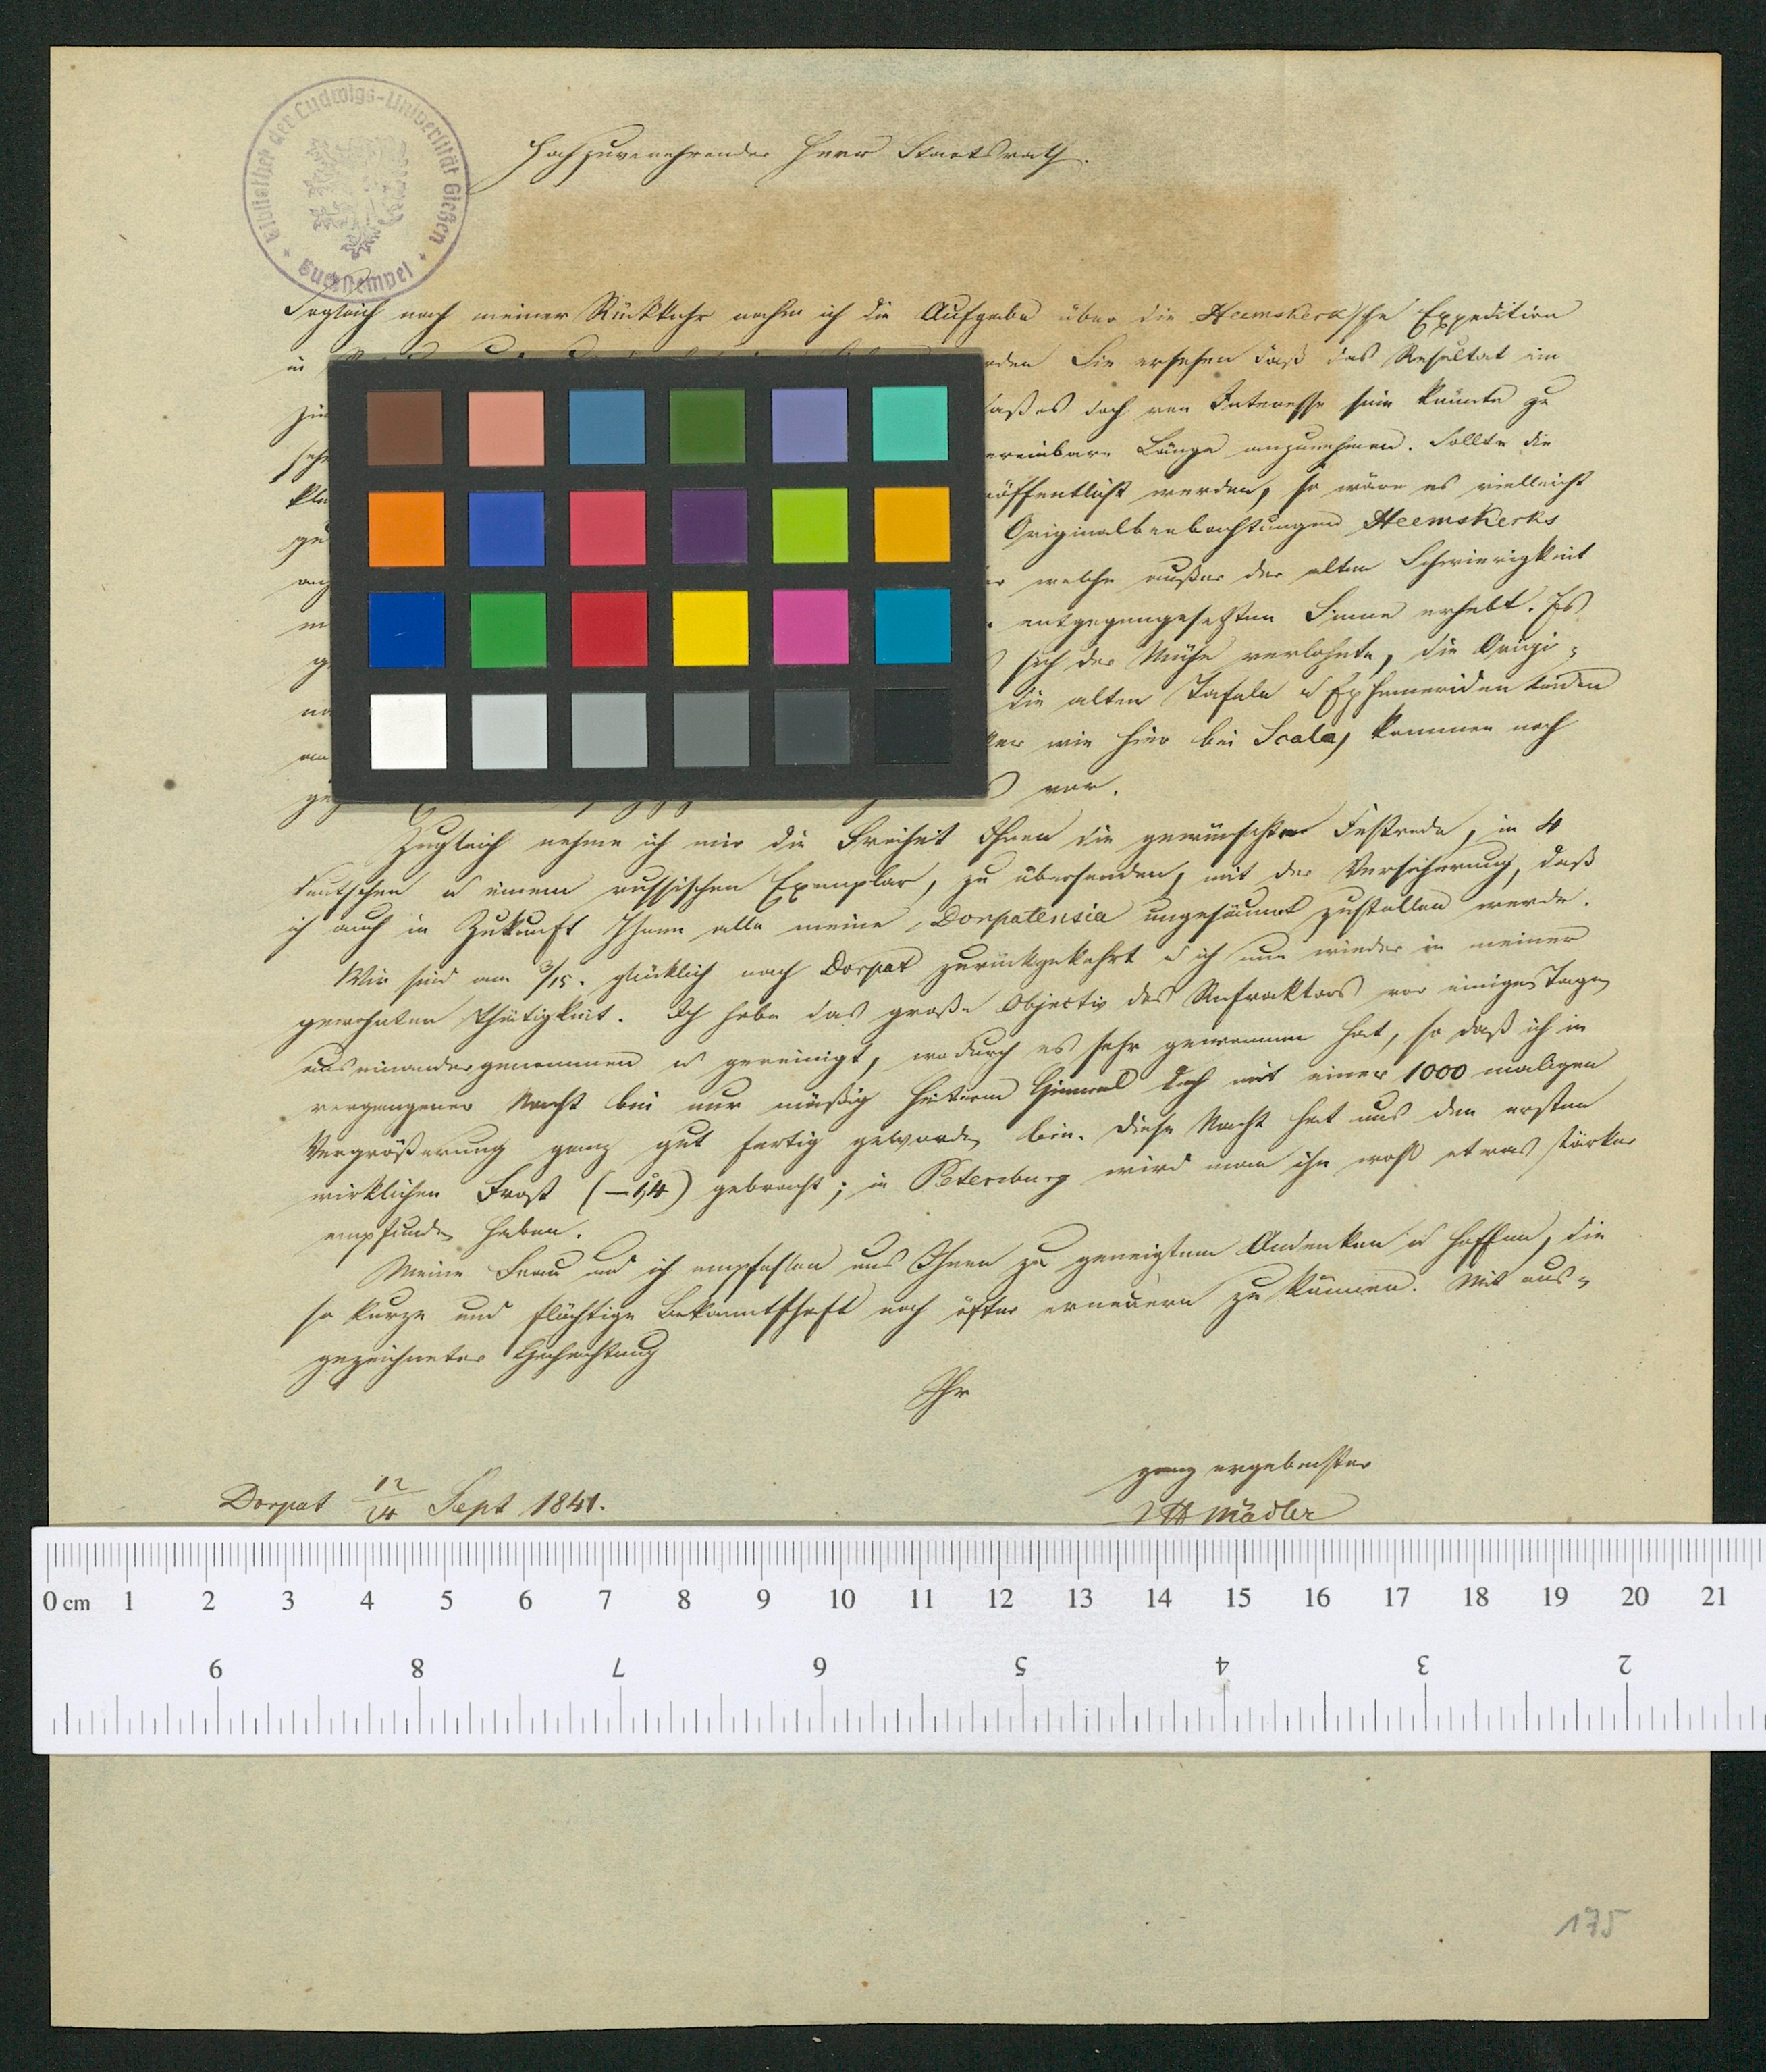 Bibliothek der Ludwigs-Universität Gießen
Tauschstempel
Hochzuverehrender Herr Staatsrath.
Sogleich nach meiner Rückkehr nahm ich die Aufgabe über die Heemskerk'sche Expedition
in
rden Sie ersehen daß das Resultat im
daß es doch von Interesse sein könnte zu
sehr
ereinbare Länge anzunehmen. Sollte die
kle
röffentlicht werden, so wäre es vielleicht
gu
Originalbeobachtungen Heemskerks
ang
welche außer der alten Schwierigkeit
entgegengesetzten Sinne erhebt. Es
sich der Mühe verlohnte, die Origi-
die alten Tafeln u Ephemeriden leiden
wie hier bei Scala, kommen noch
vor.
Zugleich nehme ich mir die Freiheit Ihnen die gewünschte Festrede, in 4
deutschen u einem russischen Exemplar, zu übersenden, mit der Versicherung, daß
ich auch in Zukunft Ihnen alle meine Dorpatensia ungesäumt zustellen werde.
Wir sind am 3/15. glücklich nach Dorpat zurückgekehrt u ich nun wieder in meiner
gewohnten Thätigkeit. Ich habe das große Objectiv des Refraktors vor einigen Tagen
auseinandergenommen u gereinigt, wodurch es sehr gewonnen hat, so daß ich in
vergangener Nacht bei nur mäßig heiterm Himmel doch mit einer 1000 maligen
Vergrößerung ganz gut fertig geworden bin. Diese Nacht hat uns den ersten
wirklichen Frost (—1°,4) gebracht; in Petersburg wird man ihn wohl etwas stärker
empfunden haben.
Meine Frau und ich empfehlen uns Ihnen zu geneigtem Andenken u hoffen, die
so kurze und flüchtige Bekanntschaft noch öfter erneuern zu können. Mit aus-
gezeichneter Hochachtung
Ihr
ganz ergebenster
Dorpat 12/24 Sept 1841.
JH Mädler
0 cm 1 2 3 4 5 6 7 8 9 10 11 12 13 14 15 16 17 18 19 20 21
9 8 7 6 5 4 3 2
175